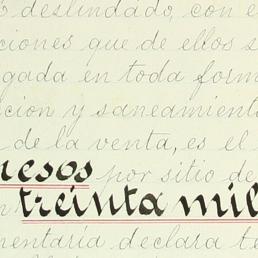 deslindado, con e
ciones que de ellos s
gada en toda form
cion y saneamient
de la venta, es el
resos por sitio de
treinta mil
mentaria declara te